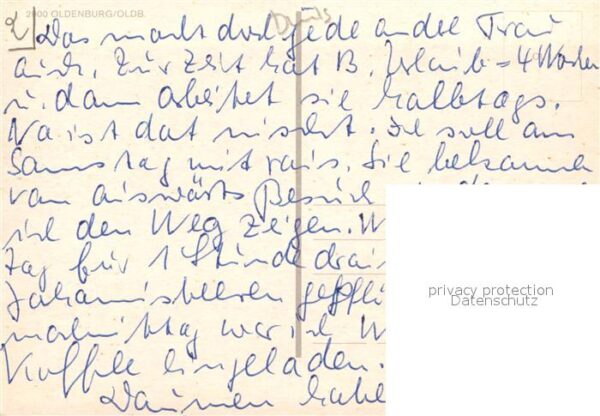 2900 OLDENBURG/OLDB.
2)
Das macht doch jede andre Frau
auch. Zur Zeit hat B. Urlaub = 4 Wochen
u. dann arbeitet sie halbtags.
Na ist dat nischt. Sie soll am
Samstag mit rais. Sie bekamen
von auswärts Besuch
ich den Weg zeigen. W
tag für 1 Stunde drau
Johannisbeeren gepflü
mahittag war ich
Kaffee eingeladen.
Daumen habe
privacy protection
Datenschutz